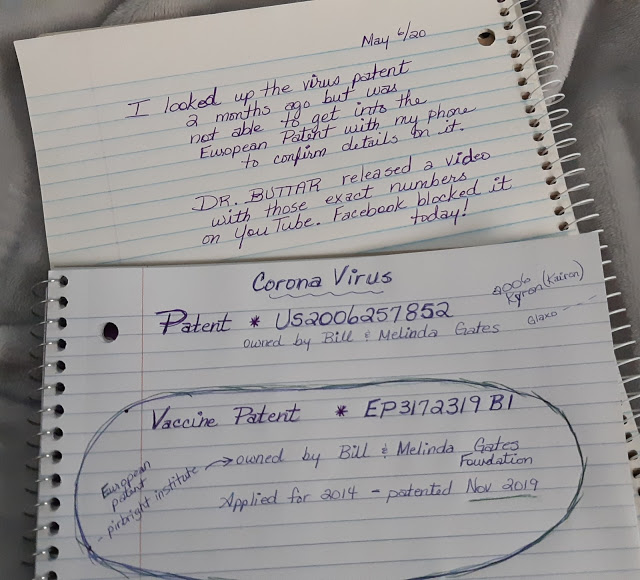 May 6/20
I looked up the virus patent
2 months ago but was
not able to get into the
European Patent with my phone
to confirm details on it.
DR. BUTTAR released a video
with those exact numbers
on YouTube. Facebook blocked it
today!
Corona Virus
2006
Kyron (Kairon)
Patent * US2006257852
Glaxo
owned by Bill & Melinda Gates
Vaccine Patent * EP3172319 B1
European
patent
- pirbright institute
owned by Bill & Melinda Gates
Foundation
Applied for 2014 - patented Nov 2019